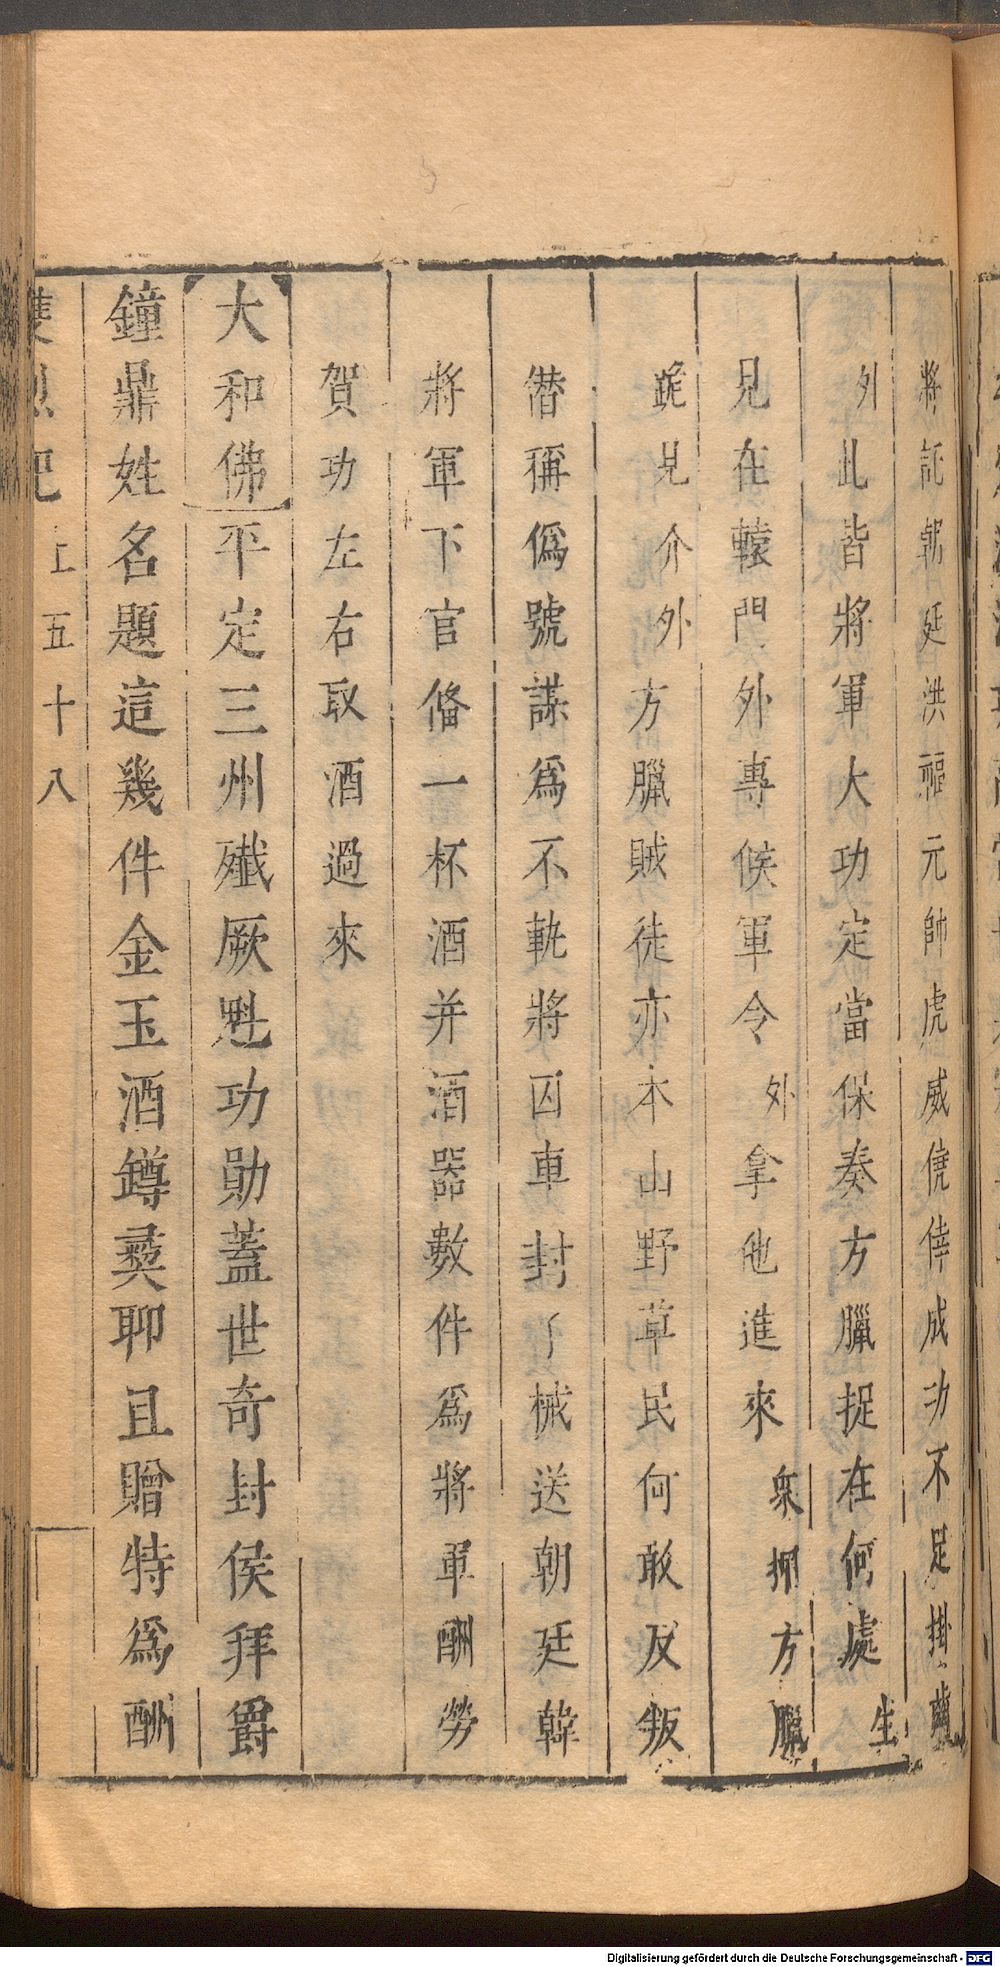 將託朝廷洪福元帥虎威僥倖成功不足掛齒
外此皆將軍大功定當保奏方臘捉在何處生
見在轅門外專候軍令外拿他進來衆押方臘
跪見介外方臘賊徒亦本山野草民何敢反叛
僭稱僞號謀爲不軌將囚車封了械送朝廷韓
將軍下官俻一杯酒并酒器數件爲將軍酬勞
賀功左右取酒過來
大和佛平定三州殲厥魁功勛蓋世奇封侯拜爵
鐘鼎姓名題這幾件金玉酒鐏彞聊且贈特爲酬
雙烈記上五十八
Digitalisierung gefördert durch die Deutsche Forschungsgemeinschaft - DFG